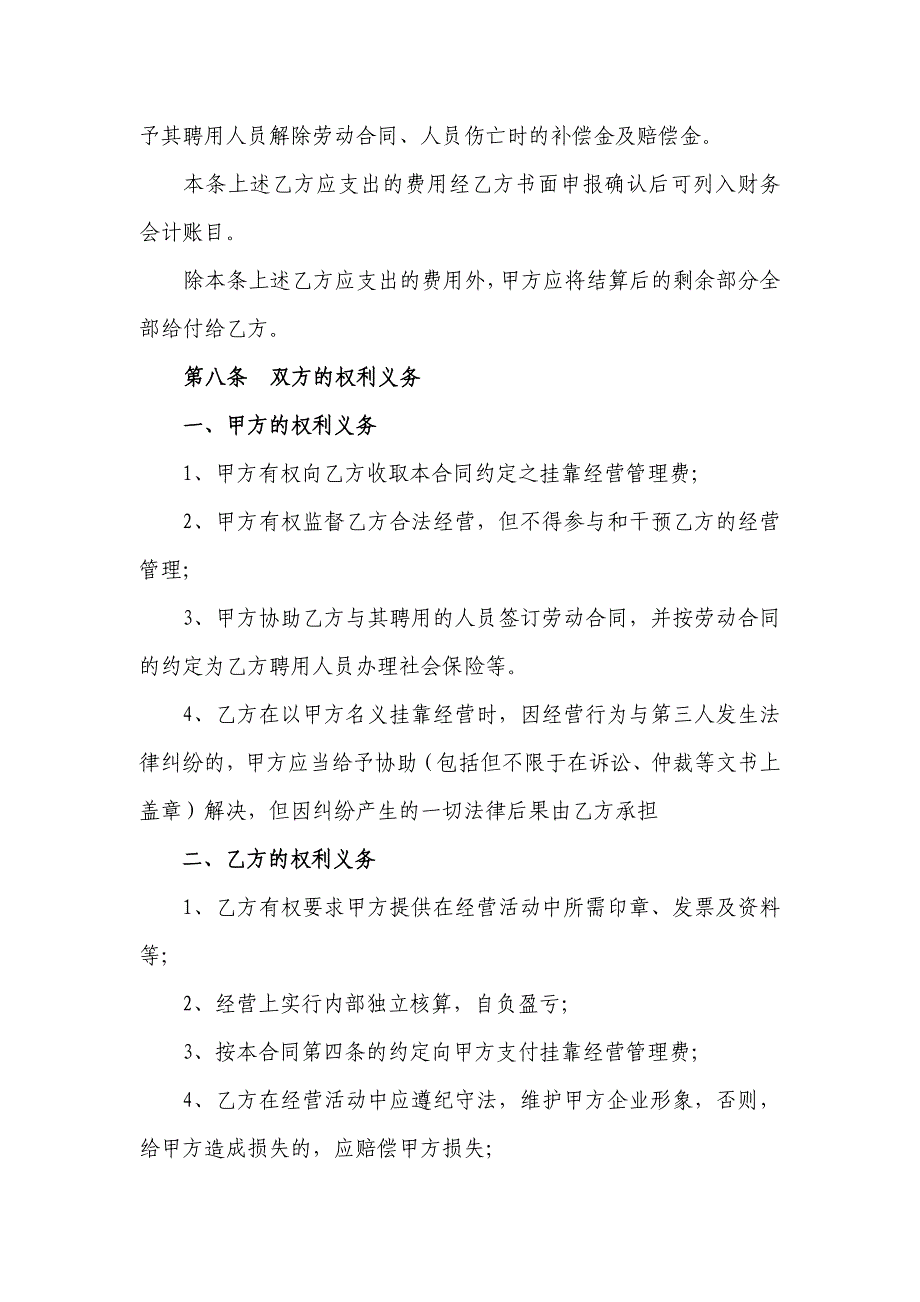 予其聘用人员解除劳动合同、人员伤亡时的补偿金及赔偿金。
本条上述乙方应支出的费用经乙方书面申报确认后可列入财务
会计账目。
除本条上述乙方应支出的费用外，甲方应将结算后的剩余部分全
部给付给乙方。
第八条　双方的权利义务
一、甲方的权利义务
1、甲方有权向乙方收取本合同约定之挂靠经营管理费；
2、甲方有权监督乙方合法经营，但不得参与和干预乙方的经营
管理；
3、甲方协助乙方与其聘用的人员签订劳动合同，并按劳动合同
的约定为乙方聘用人员办理社会保险等。
4、乙方在以甲方名义挂靠经营时，因经营行为与第三人发生法
律纠纷的，甲方应当给予协助（包括但不限于在诉讼、仲裁等文书上
盖章）解决，但因纠纷产生的一切法律后果由乙方承担
二、乙方的权利义务
1、乙方有权要求甲方提供在经营活动中所需印章、发票及资料
等；
2、经营上实行内部独立核算，自负盈亏；
3、按本合同第四条的约定向甲方支付挂靠经营管理费；
4、乙方在经营活动中应遵纪守法，维护甲方企业形象，否则，
给甲方造成损失的，应赔偿甲方损失；